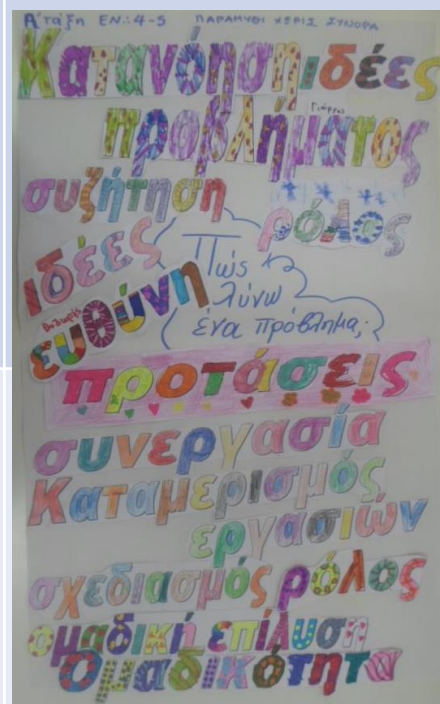 Α΄τάξη ΕΝ.: 4-5 ΠΑΡΑΜΥΘΙ ΧΩΡΙΣ ΣΥΝΟΡΑ
Κατανόηση ιδέες
Γιώργος
προβλήματος
συζήτηση
ρόλος
ιδέες
Πώς
λύνω
ένα πρόβλημα;
ευθύνη
προτάσεις
συνεργασία
Καταμερισμός
εργασιών
σχεδιασμός ρόλος
ομαδική επίλυση
Ομαδικότητα